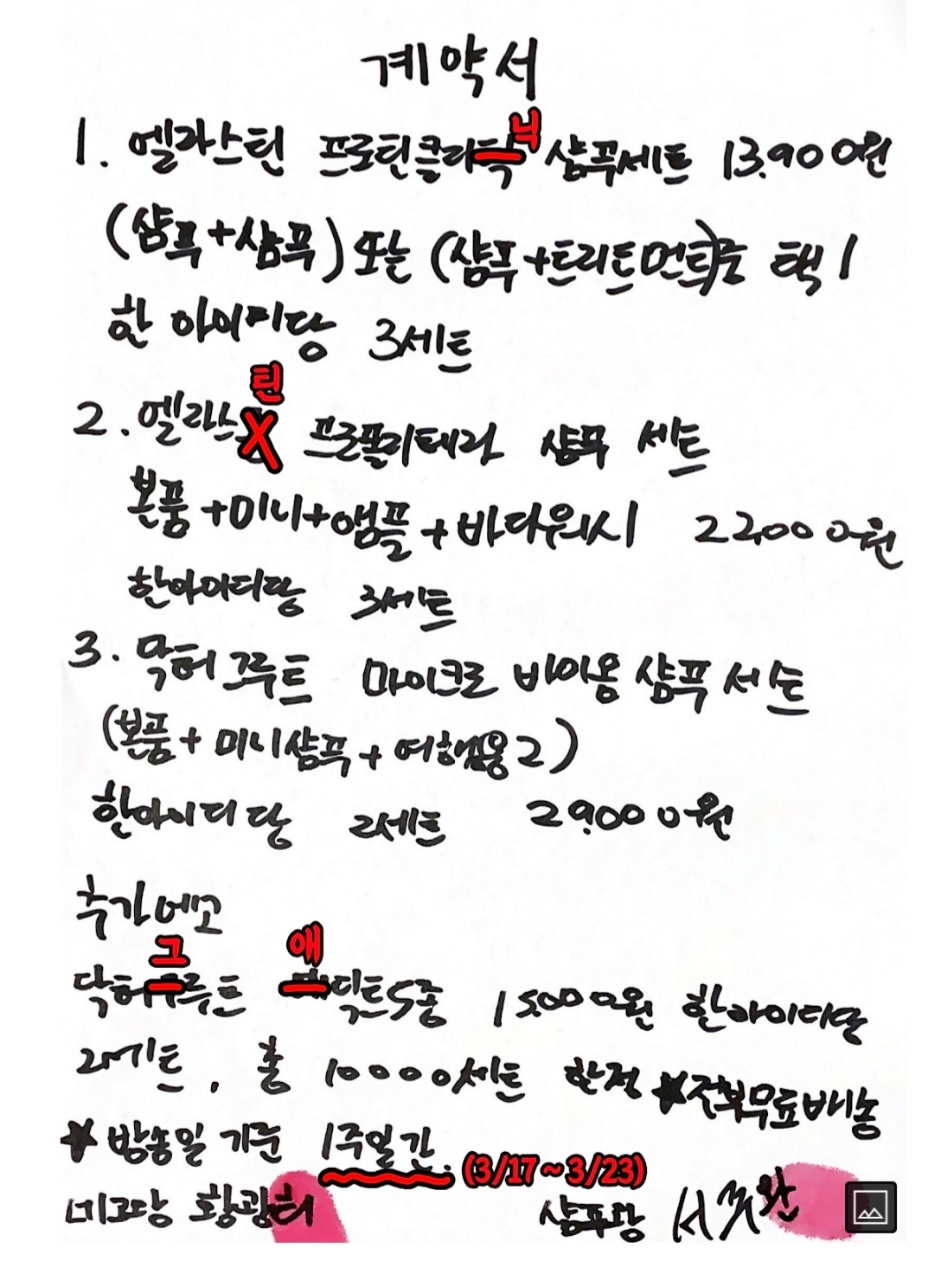 계약서
1. 엘라스틴 프로틴클리닉 샴푸세트 13,900원
(샴푸+샴푸) 또는 (샴푸+트리트먼트)중 택1
한 아이디당 3세트
2. 엘라스틴 프로폴리테라 샴푸 세트
본품+미니+앰플+바디워시 22,000원
한아이디당 3세트
3. 닥터 그루트 마이크로 바이옴 샴푸 세트
(본품+미니샴푸+여행용2)
한아이디당 2세트 29,000원
추가메모
닥터그루트 애딕트5종 15,000원 한아이디당
2세트, 총 10000세트 한정 ★전부무료배송
★ 방송일 기준 1주일간. (3/17~3/23)
네고왕 황광희 샴푸왕